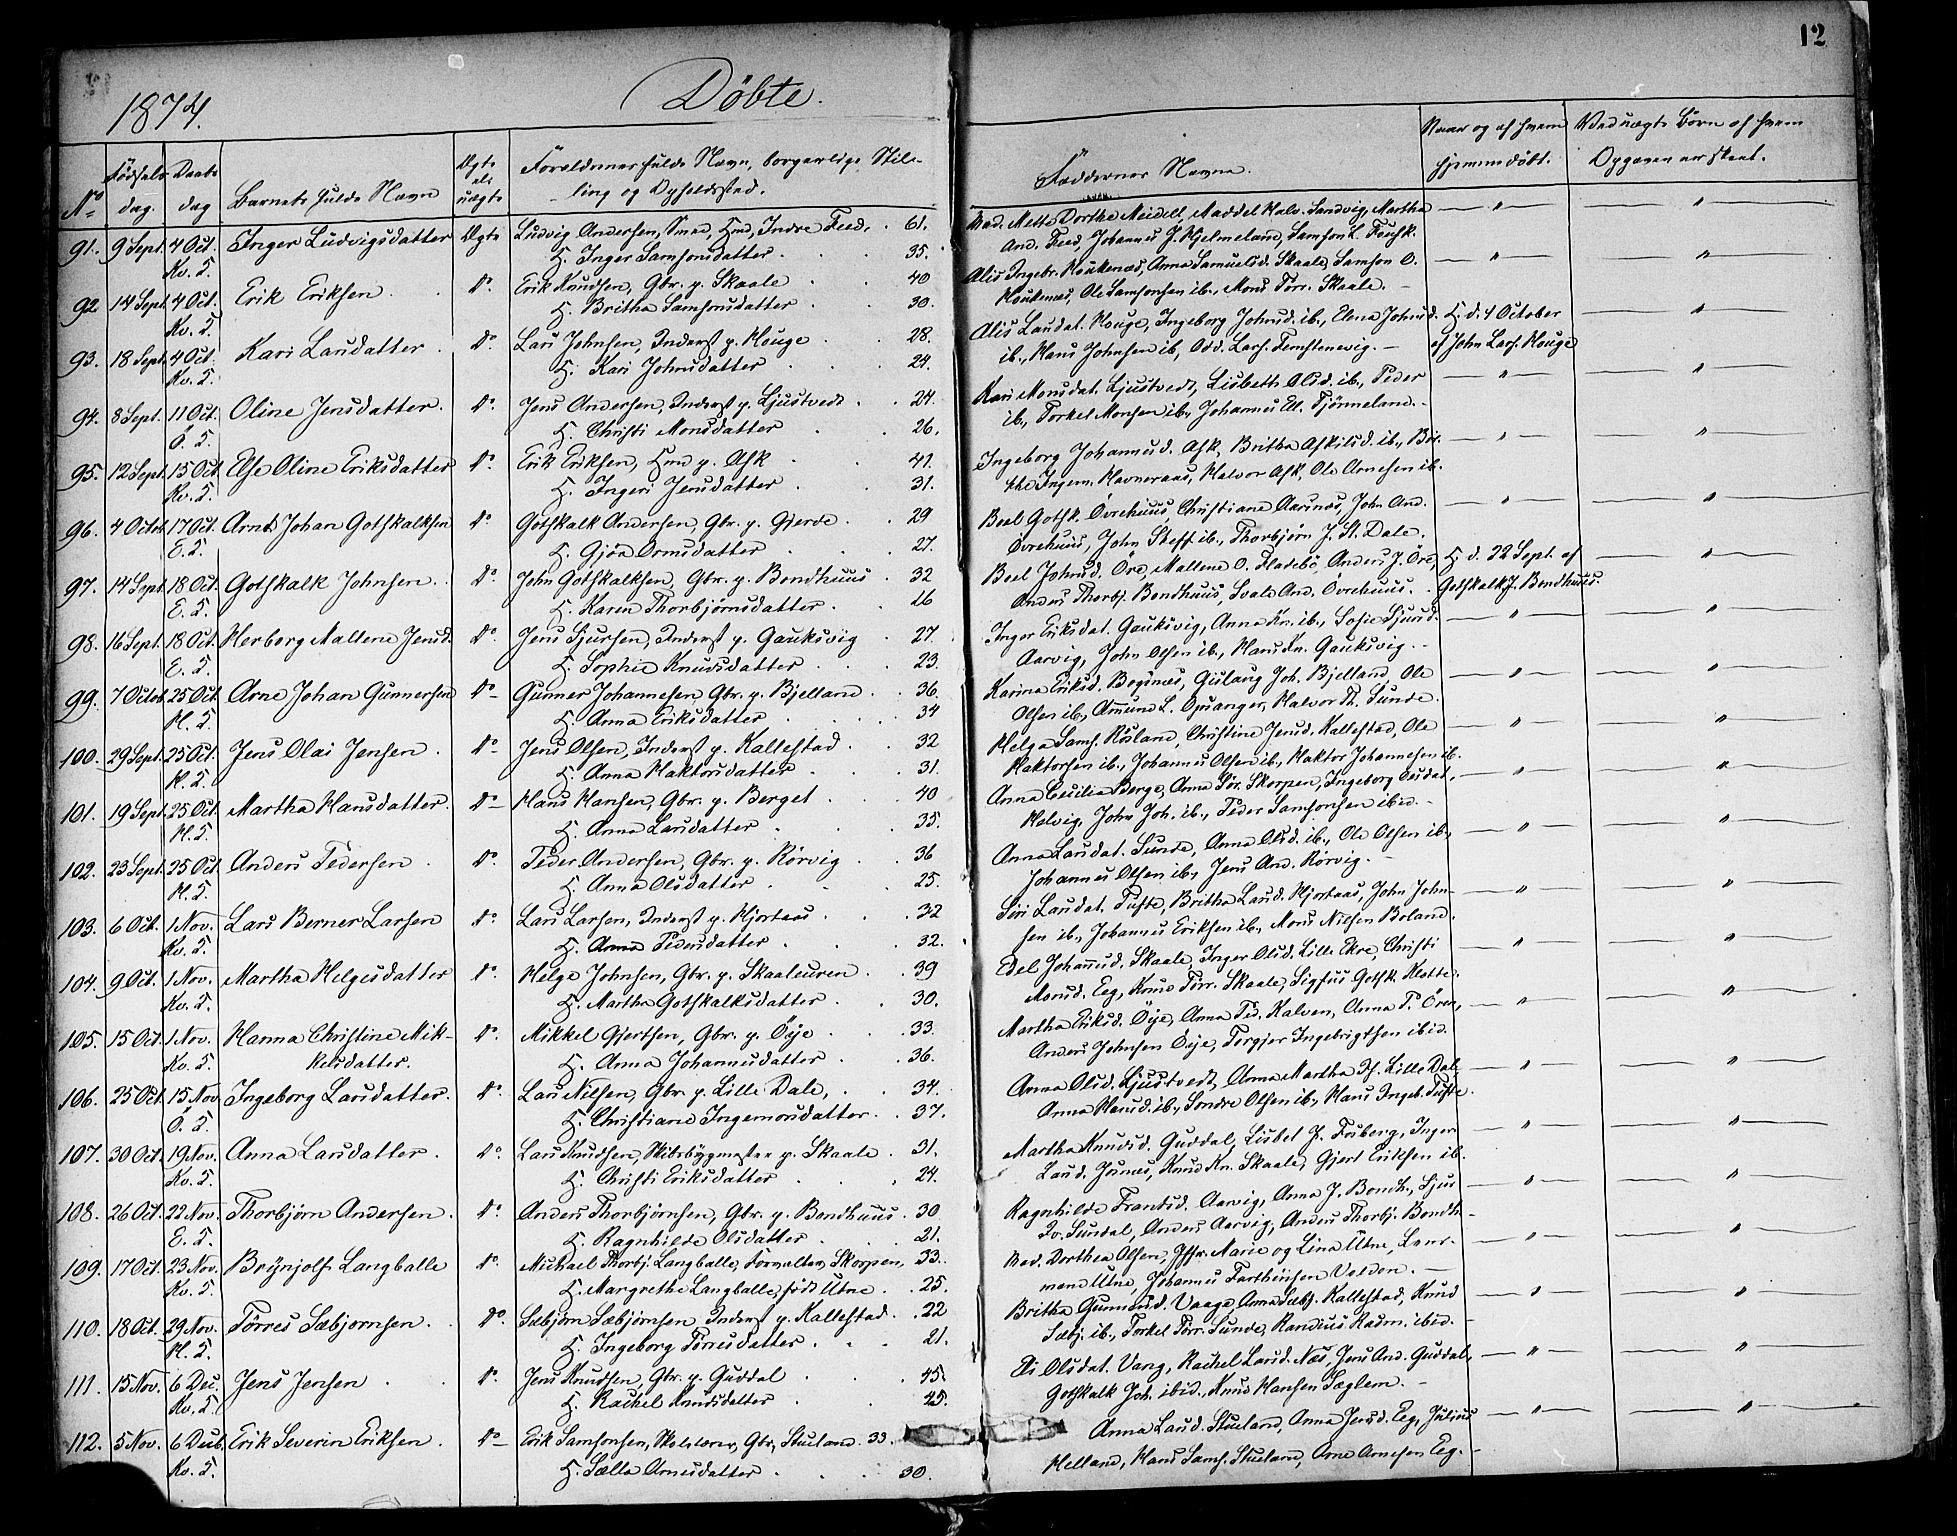 12
1874.
Döbte.
No
Fødsels
dag.
Daabs
dag
Barnets fulde Navn
Ægte
el.
uægte
Forældrenes fulde Navn, borgerlige Stil-
ling og Opholdssted.
Faddernes Navne.
Naar og af hvem
hjemmedöbt.
Ved uægte Børn af hvem
Opgaven er skeet.
91. 9 Sept. 4 Oct. Inger Ludvigsdatter Ægte Ludvig Andersen, Smed, Hmd, Indre Feed, 61. Mad. Mette Dorthea Meidell, Maddel Halv. Sandvig, Martha — " — — " —
Kv. S. H. Inger Samsonsdatter 35. And. Feed, Johannes J. Hjelmeland, Samson L.
92. 14 Sept. 4 Oct. Erik Eriksen Do. Erik Knudsen, Gbr. p. Skaale 40 Alis Ingebr. Houkenæs, Anna Samuelsd. Skaale, Samson O. — " — — " —
Kv. S. H. Britha Samsonsdatter 30. Houkenæs, Ole Samsonsen ib., Mons Törr. Skaale.
93. 18 Sept. 4 Oct. Kari Larsdatter Do. Lars Johnsen, Inderst p. Houge 28. Alis Larsdat. Houge, Ingeborg Johnsd. ib., Elena Johnsd. H. d. 4 October — " —
Kv. S. H. Kari Johnsdatter 24. ib., Hans Johnsen ib, Odd. Lars. Femstenevig. af John Lars. Houge
94. 8 Sept. 11 Oct. Oline Jensdatter. Do. Jens Andersen, Inderst p. Ljustvedt 24. Kari Monsdat. Ljustvedt, Lisbeth Olsd. ib., Peder — " — — " —
Ö S. H. Christi Monsdatter 26. ib., Torkel Monsen ib., Johannes Ell. Tjönneland.
95. 12 Sept. 15 Oct. Else Oline Eriksdatter Do. Erik Eriksen, Hmd p. Ask 41. Ingeborg Johannesd. Ask, Britha Askilsd. ib., Bri- — " — — " —
Kv. S. H. Ingeri Jensdatter 31. the Ingem. Havneraas, Halvor Ask, Ole Arnesen ib.
96. 4 Octob. 17 Oct. Arndt Johan Gotskalksen Do. Gotskalk Andersen, Gbr. p. Gjerde 29 Boel Gotsk. Övrehuus, Christiane Aarsnæs, John And. — " — — " —
E. S. H. Gjöa Ormsdatter 27. Övrehuus, John Steff. ib., Thorbjörn J. St. Dale.
97. 14 Sept. 18 Oct. Gotskalk Johnsen. Do. John Gotskalksen, Gbr. p. Bondhuus 32 Boel Johnsd. Öre, Mallene O. Fladebö, Anders J. Öre, H. d. 22 Sept. af — " —
E. S. H. Karen Thorbjörnsdatter 26 Anders Thorbj. Bondhuus, Svale And. Övrehuus. Gotskalk J. Bondhuus.
98. 16 Sept. 18 Oct. Herborg Mallene Jensd. Do. Jens Sjursen, Inderst p. Gauksvig 27. Inger Eriksdat. Gauksvig, Anna Kn. ib., Sofie Sjursd. — " — — " —
E. S. H. Sophie Knudsdatter 23. Aarvig, John Olsen ib., Hans Kn. Gauksvig.
99. 7 Octob. 25 Oct. Arne Johan Gunnersen Do. Gunner Johannesen Gbr. p. Bjelland 36. Karina Eriksd. Bogsnæs, Gislaug Joh. Bjelland, Ole — " — — " —
H. S. H. Anna Eriksdatter 34 Olsen ib., Amund L. Opsanger, Halvor Th. Sunde.
100. 29 Sept. 25 Oct. Jens Olai Jensen. Do. Jens Olsen, Inderst p. Kallestad 32 Helga Sams. Rösland, Christine Jensd. Kallestad, Ole — " — — " —
H. S. H. Anna Haktorsdatter 31. Haktorsen ib., Johannes Olsen ib., Haktor Johannesen ib.
101. 19 Sept. 25 Oct. Martha Hansdatter. Do. Hans Hansen, Gbr. p. Berget 40 Anna Cecilia Berge, Anna Tör. Skorpen, Ingeborg — " — — " —
H. S. H. Anna Larsdatter 35. Halvig, John Joh. ib., Peder Samsonsen ibid.
102. 23 Sept. 25 Oct. Anders Pedersen Do. Peder Andersen, Gbr. p. Rörvig 36 Anna Larsdat. Sunde, Anna Olsd. ib., Ole Olsen ib., — " — — " —
H. S. H. Anna Olsdatter 25. Johannes Olsen ib., Jens And. Rörvig.
103. 6 Oct. 1 Nov. Lars Berner Larsen Do. Lars Larsen, Inderst p. Hjortaas 32 Siri Larsdat. Tufte, Britha Larsd. Hjortaas, John John- — " — — " —
Kv. S. H. Anna Pedersdatter 32. sen ib., Johannes Eriksen ib., Mons Nilsen Boland.
104. 9 Oct. 1 Nov. Martha Helgesdatter Do. Helge Johnsen, Gbr. p. Skaaleuren 39 Edel Johansd. Skaale, Inger Olsd. Lille Ekre, Christi — " — — " —
Kv. S. H. Martha Gotskalksdatter 30. Monsd. Eeg, Knud Törr. Skaale, Sigfus Gotsk. Klette.
105. 15 Oct. 1 Nov. Hanna Christine Mik- Do. Mikkel Gjertsen, Gbr. p. Öye 33. Martha Eriksd. Öye, Anna Ped. Kalven, Anna P. Ören, — " — — " —
Kv. S. kelsdatter. H. Anna Johannesdatter 36. Anders Johnsen Öye, Torgjer Ingebrigtsen ibid.
106. 25 Oct. 15 Nov. Ingeborg Larsdatter. Do. Lars Nilsen, Gbr. p. Lille Dale, 34. Anna Olsd. Ljustvedt, Anna Martha Lille Dal — " — — " —
Ö. S. H. Christiane Ingemorsdatter 37. Anna Hansd. ib., Sondre Olsen ib., Hans Ingeb. Tufte.
107. 30 Oct. 19 Nov. Anna Larsdatter. Do. Lars Knudsen, Skibsbygmester p. Skaale 31. Martha Knudsd. Guddal, Lisbet J. Friberg, Inger — " — — " —
Kv. S. H. Christi Eriksdatter 24. Larsd. Jusnæs, Knud Kn. Skaale, Gjert Eriksen ib.
108. 26 Oct. 22 Nov. Thorbjörn Andersen. Do. Anders Thorbjörnsen, Gbr. p. Bondhuus 30 Ragnhilde Frantsd. Aarvig, Anna J. Bondh., Sjur — " — — " —
E. S. H. Ragnhilde Olsdatter 21. Iv. Sundal, Anders Aarvig, Anders Thorbj. Bondh.
109. 17 Oct. 23 Nov. Brynjolf Langballe Do. Michael Thorbj. Langballe, Forvalter, Skorpen, 33. Mad. Dorthea Olsen, Jfr. Marie og Lina Utne, Lens- — " — — " —
Kv. S. H. Margrethe Langballe, född Utne 25. mand Utne, Johannes Farthinsen Valdon.
110. 18 Oct. 29 Nov. Törres Sæbjornsen. Do. Sæbjörn Sæbjörnsen, Inderst p. Kallestad 22 Britha Gunnersd. Vaage, Anna Sæbj. Kallestad, Knud — " — — " —
H. S. H. Ingeborg Törresdatter 21. Sæbj. ib., Torkel Törr. Sunde, Randius Rasm. ibid.
111. 15 Nov. 6 Dec. Jens Jensen Do. Jens Knudsen, Gbr. p. Guddal 45. Eli Olsdat. Vang, Rachel Larsd. Næs, Jens And. Guddal, — " — — " —
Kv. S. H. Rachel Knudsdatter 45. Gotskalk Joh. ibid., Knud Hansen Sæglem.
112. 5 Nov. 6 Decb. Erik Severin Eriksen. Do. Erik Samsonsen, Skolelærer, Gbr, Stueland 33. Anna Larsd. Stueland, Anna Jensd. Eeg, Julius — " — — " —
Kv. S. H. Sælla Arnesdatter 30. Helland, Hans Sams. Stueland, Arne Arnesen Eeg.